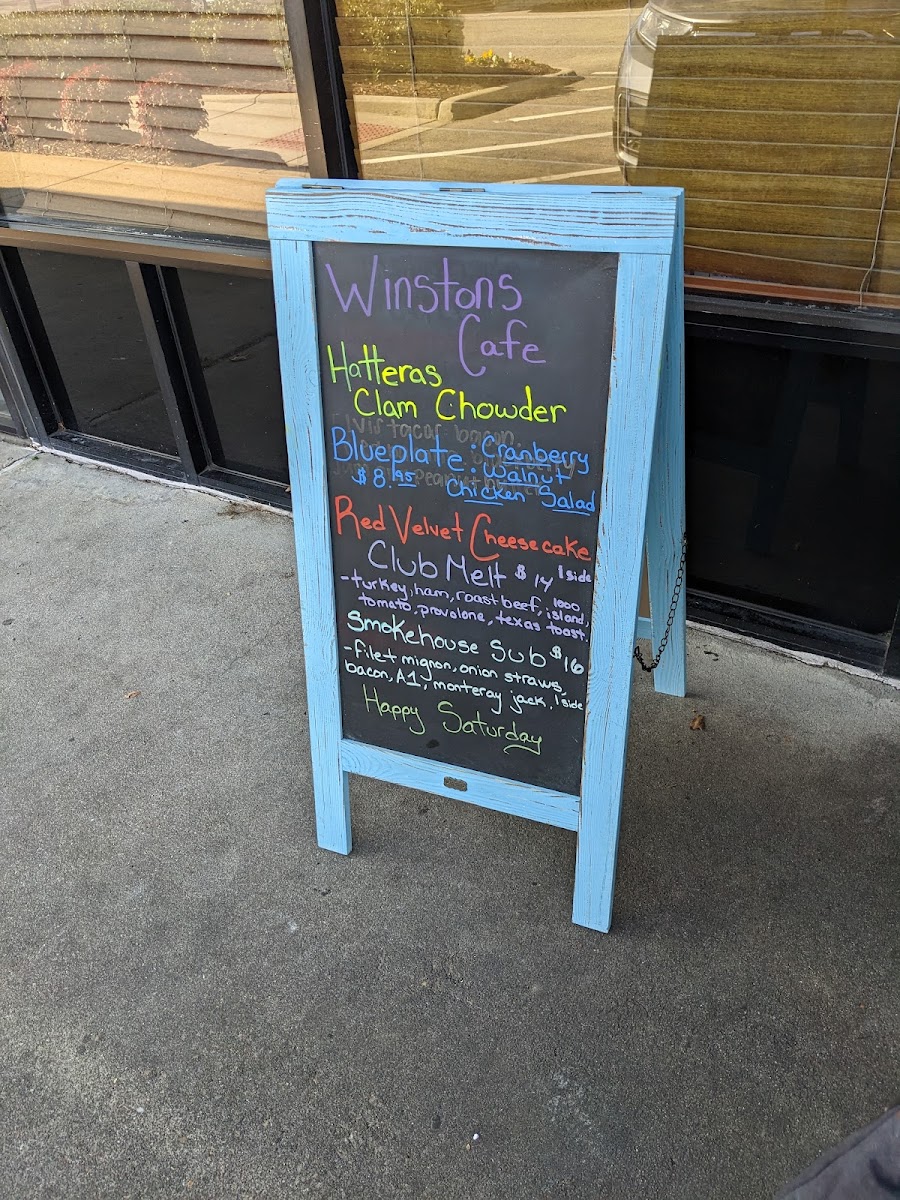 Winstons
Cafe
Hatteras
Clam Chowder
Blueplate : Cranberry
$8.95 Walnut
Chicken Salad
Red Velvet Cheesecake
Club Melt $14 1 side
- turkey, ham, roast beef, 1000 island,
tomato, provolone, texas toast.
Smokehouse Sub $16
- filet mignon, onion straws,
bacon, A1, monteray jack, 1 side
Happy Saturday